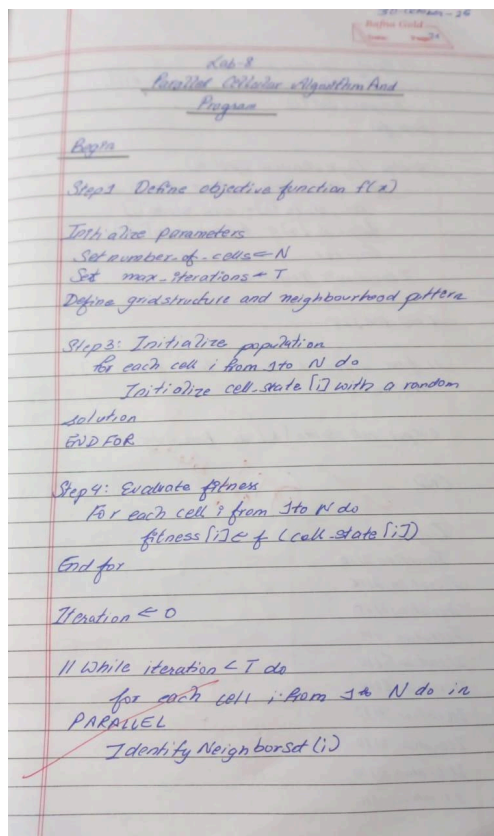 Lab-8
Parallel Cellular Algorithm And
Program
Begin
Step1 Define objective function f(x)
Initialize parameters
Set number-of-cells ← N
Set max-iterations ← T
Define gridstructure and neighbourhood pattern
Step3: Initialize population
for each cell i from 1 to N do
Initialize cell-state [i] with a random
solution
END FOR
Step4: Evaluate fitness
For each cell i from 1 to N do
fitness [i] ← f (cell-state [i])
End for
Iteration ← 0
// While iteration < T do
for each cell i from 1 to N do in
PARALLEL
Identify NeighborSet (i)